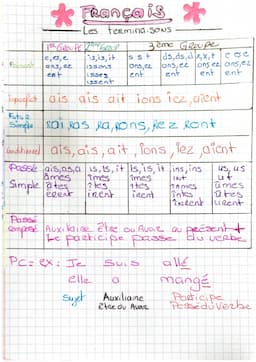 Français
Les terminaisons
1er Groupe 2ème Group 3ème Groupe
Présent
e, es, e is, is, it s s t ds, ds, d x, x, t e es e
ons, ez issons ons, ez ons, ez ons ez ons, ez
ent issez ent ent ent ent
issent
imparfait ais ais ait ions iez, aient
Futur Simple rai ras ra, rons, rez ront
Conditionnel ais, ais, ait, ions, iez aient
Passé Simple
ai, as, a is, is, it is, is, it ins, ins us, us
âmes îmes îmes int ut
âtes îtes îtes înmes ûmes
èrent irent irent întes ûtes
inrent urent
Passé composé
Auxiliaire être ou Avoir au présent +
Le participe passé du verbe
PC = ex : Je suis allé
elle a mangé
Sujet Auxiliaire Participe
Etre ou Avoir Passé du Verbe